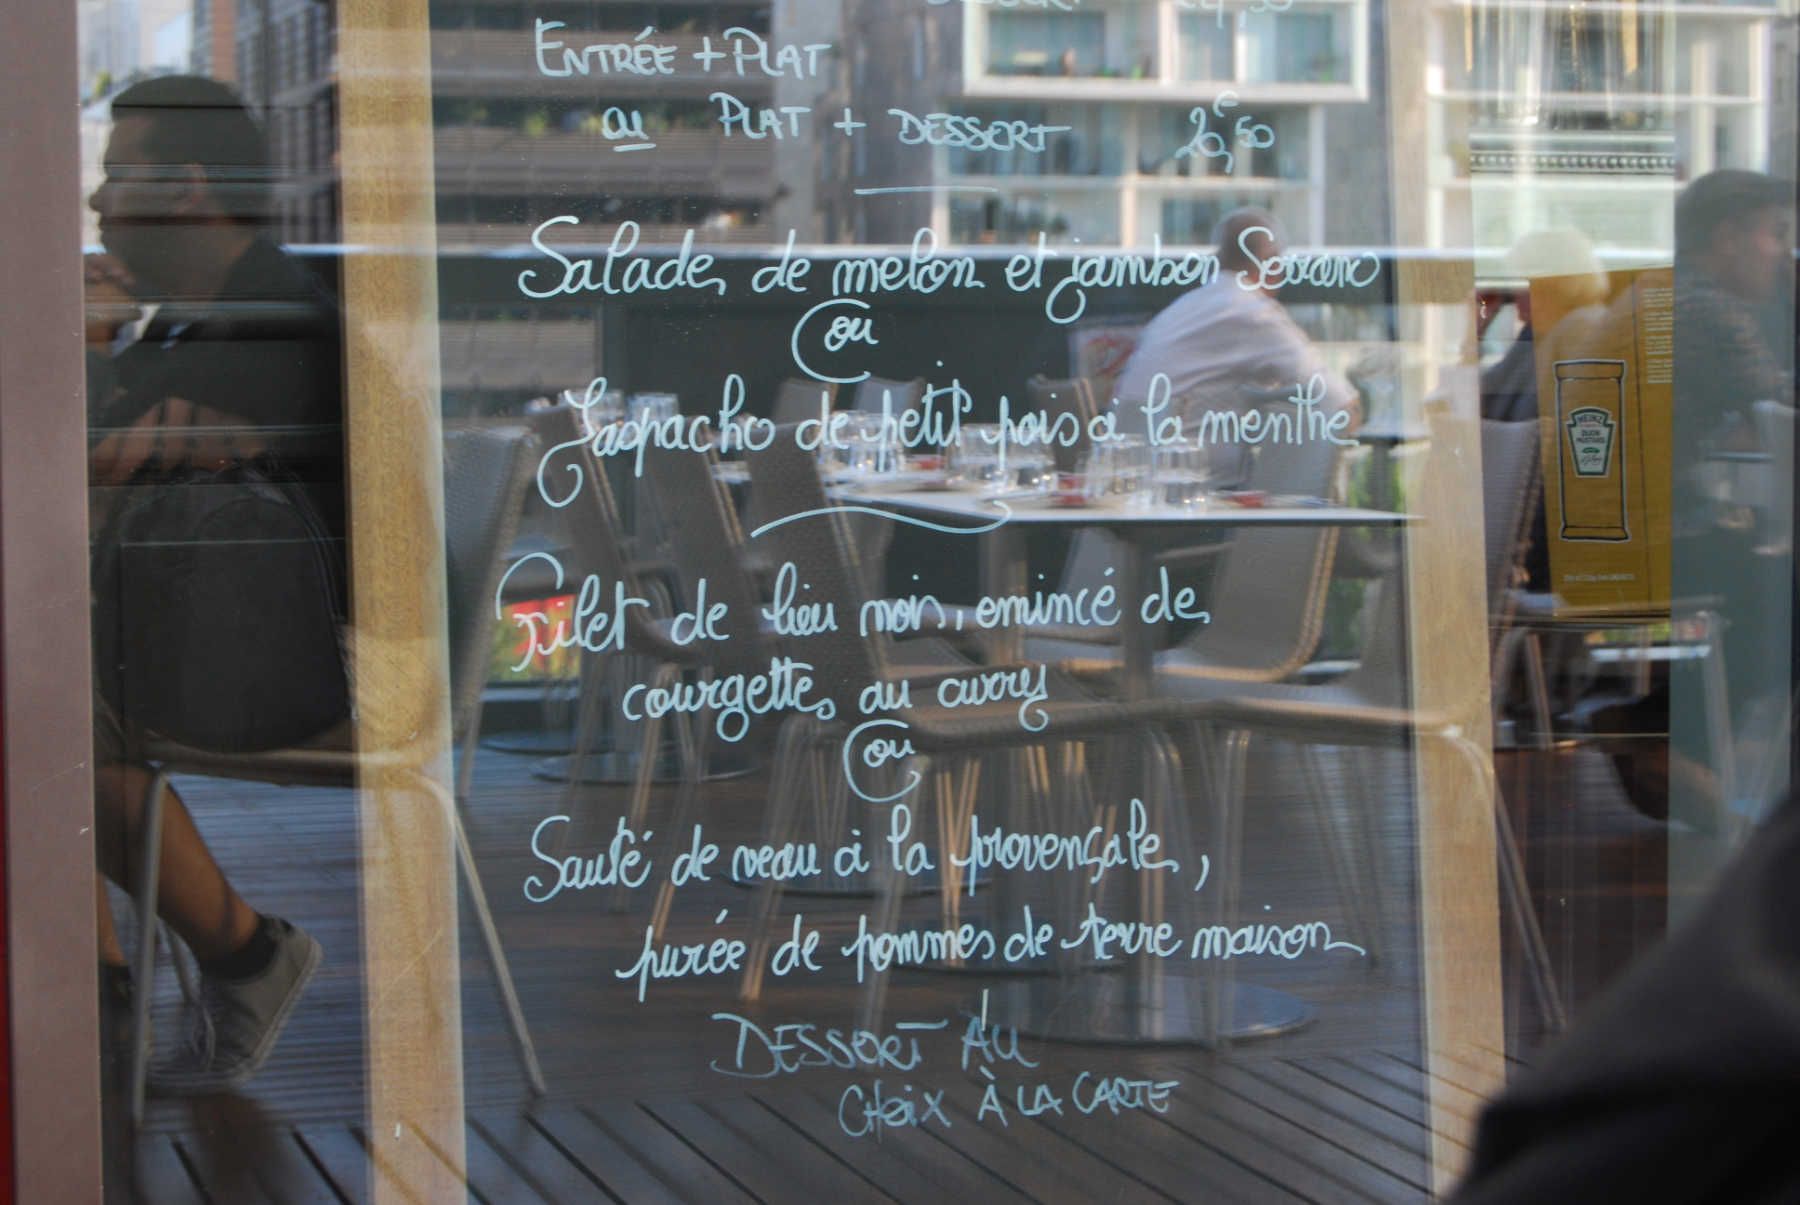 DESSERT 24,50
ENTRÉE + PLAT
ou PLAT + DESSERT 20,€50
Salade de melon et jambon Serrano
ou
Gaspacho de petit pois à la menthe
Filet de lieu noir, émincé de
courgettes au curry
ou
Sauté de veau à la provençale,
purée de pommes de terre maison
DESSERT AU
CHOIX À LA CARTE
HEINZ
DIJON
MUSTARD